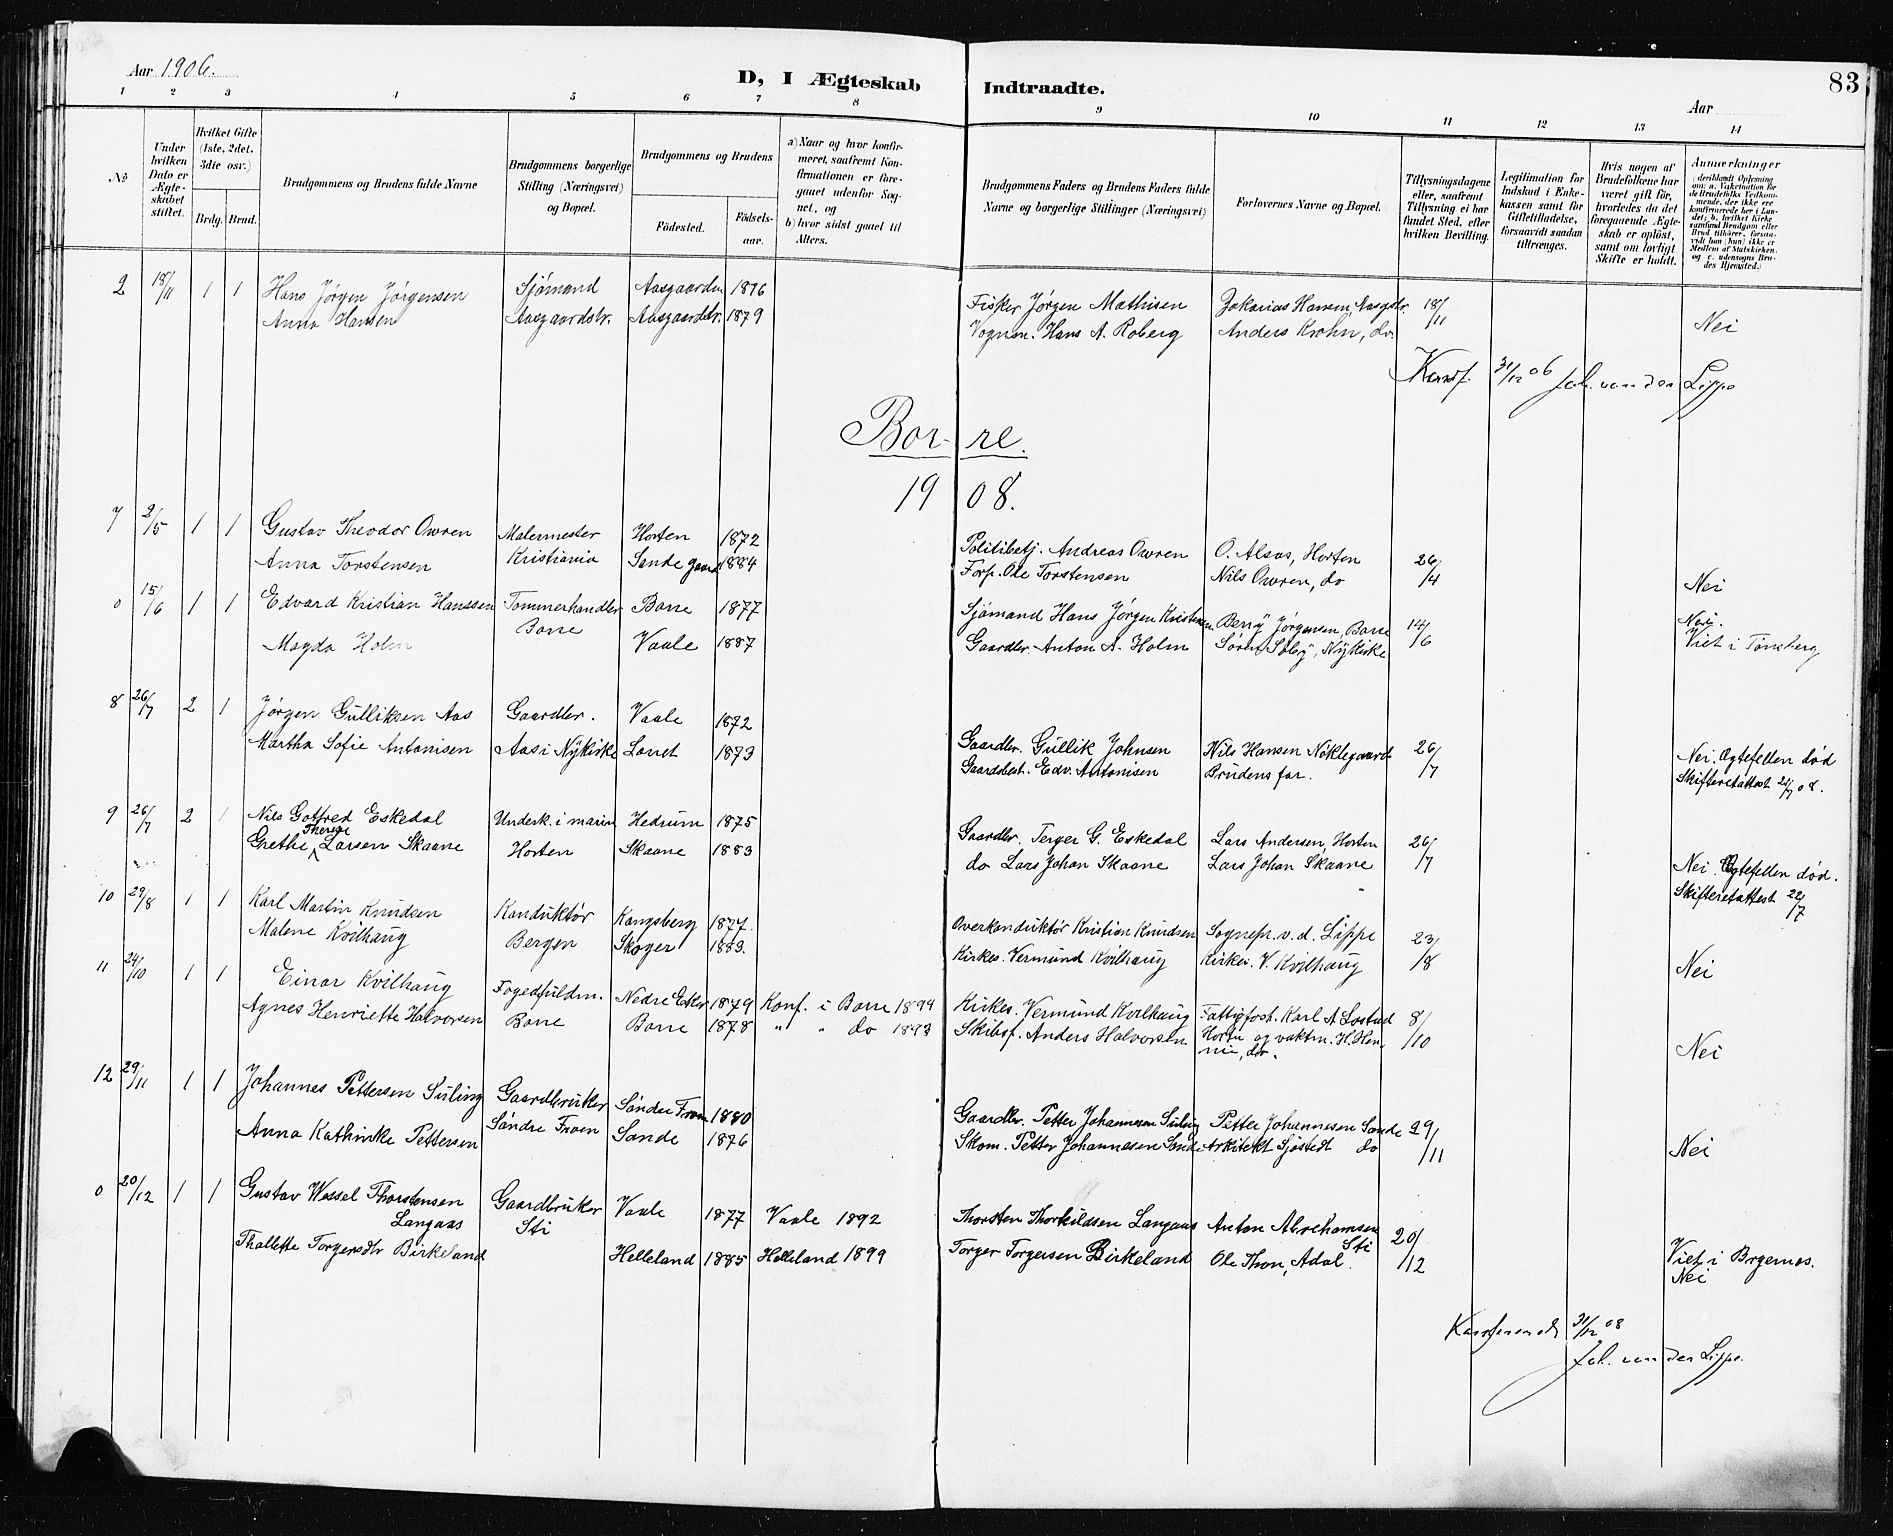 Aar 1906.
D, I Ægteskab Indtraadte.
83
Aar
1 2 3 4 5 6 7 8 9 10 11 12 13 14
No
Under hvilken Dato er Ægteskabet stiftet.
Hvilket Gifte (1ste, 2det, 3die osv.)
Brdg. Brud.
Brudgommens og Brudens fulde Navne
Brudgommens borgerlige Stilling (Næringsvei) og Bopæl.
Brudgommens og Brudens
Fødested.
Fødselsaar.
a) Naar og hvor konfirmeret, saafremt Konfirmationen er foregaaet udenfor Sognet, og
b) hvor sidst gaaet til Alters.
Brudgommens Faders og Brudens Faders fulde Navne og borgerlige Stillinger (Næringsvei)
Forlovernes Navne og Bopæl.
Tillysningsdagene eller, saafremt Tillysning ei har fundet Sted, efter hvilken Bevilling.
Legitimation for Indskud i Enkekassen samt for Giftetilladelse, forsaavidt saadan tiltrænges.
Hvis nogen af Brudefolkene har været gift før, hvorledes da det foregaaende Ægteskab er opløst, samt om lovligt Skifte er holdt.
Anmærkninger (deriblandt Oplysning om: a. Vakcination for de Brudefolks Vedkommende, der ikke ere konfirmerede her i Landet; b. hvilket Kirkesamfund Brudgom eller Brud tilhører, forsaavidt han (hun) ikke er Medlem af Statskirken, og c. udensogns Brudes Hjemsted.)
2 18/11 1 1 Hans Jørgen Jørgensen Sjømand Aasgaardstr 1876 Fisker Jørgen Mathisen Zakarias Hansen, Aasgstr. 18/11
Anna Hansen Aasgaardstr. Aasgaardstr. 1879 Vognm. Hans A. Roberg Anders Krohn, do. Nei
Konf. 31/12 06 Joh. von der Lippe
Borre.
1908.
7 2/5 1 1 Gustav Theodor Owren Malermester Horten 1872 Politibetj. Andreas Owren O. Alsos, Horten 26/4
Anna Torstensen Kristiania Sande gaard 1884 Forp. Ole Torstensen Nils Owren, do Nei
0 15/6 1 1 Edvard Kristian Hanssen Tømmerhandler Borre 1877 Sjømand Hans Jørgen Kristensen Berg Jørgensen, Borre 14/6 Nei.
Magda Holm Borre Vaale 1887 Gaardbr. Anton A. Holm Søren Søby, Nykirke Viet i Tønsberg
8 26/7 2 1 Jørgen Gulliksen Aas Gaardbr. Vaale 1872 Gaardbr. Gullik Johnsen Nils Hansen Nøklegaard 26/7 Nei. Ægtefellen død
Martha Sofie Antonisen Aas i Nykirke 1873 Gaardbest. Edv. Antonisen Brudens far. Skifteretattest 21/7 08.
9 26/7 2 1 Nils Gotfred Eskedal Underk. i marin Hedrum 1875 Gaardbr. Terger G. Eskedal Lars Andersen, Horten 26/7
Grethe Therese Larsen Skaane Horten Skaane 1883 do Lars Johan Skaane Lars Johan Skaane Nei. Ægtefellen død.
Skifteretattest 22/7
10 29/8 1 1 Karl Martin Knudsen Konduktør Kongsberg 1877 Overkonduktør Kristian Knudsen Sognepr. v. d. Lippe 23/8
Malene Kvilhaug Bergen Skoger 1883. Kirkes. Vermund Kvilhaug Kirkes. V. Kvilhaug Nei
11 24/10 1 1 Einar Kvilhaug Fogedfuldm. Nedre Eker 1879 Konf. i Borre 1894 Kirkes. Vermund Kvilhaug Fattigfost. Karl A. Lostad 8/10
Agnes Henriette Halvorsen Borre Borre 1878 " " do 1893 Skibsf. Anders Halvorsen Horten og vaktm. H. Hennie, do. Nei
12 29/11 1 1 Johannes Pettersen Suling Gaardbruker Søndre Froen 1880 Gaardbr. Petter Johannesen Suling Petter Johannesen Sande 29/11
Anna Kathinke Pettersen Søndre Froen Sande 1876 Skom. Petter Johannesen Sande Arkitekt Sjøstedt do Nei
0 20/12 1 1 Gustav Wessel Thorstensen Langaas Gaardbruker Vaale 1877 Vaale 1892 Thorsten Thorkildsen Langaas Anton Abrahamsen Sti 20/12
Thallette Torgersdtr Birkeland Sti Helleland 1885 Helleland 1899 Torger Torgersen Birkeland Ole Thon, Adal. Viet i Bragernes.
Nei
Konfererench 31/12 08
Joh. von der Lippe.